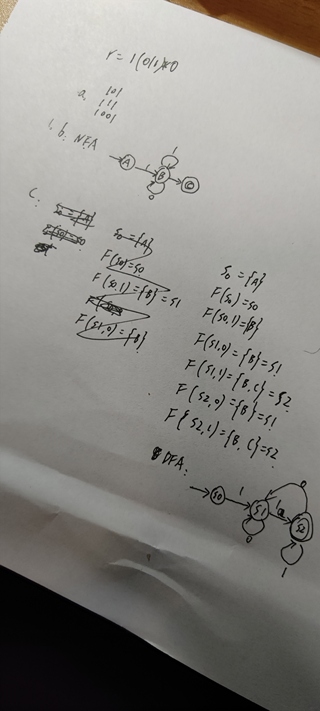 r = 1(0|1)*0
a. 101
111
1001
1. b. NFA
A 1 B 1 0 C
C:
S0 = {A}
F(S0)=S0
F(S0,1)={B}=S1
F(S1,0)={B}
S0 = {A}
F(S0)=S0
F(S0,1)={B}
F(S1,0)={B}=S1
F(S1,1)={B,C}=S2
F(S2,0)={B}=S1
F{S2,1)={B,C}=S2
DFA:
S0 1 S1 0 1 S2 0 1